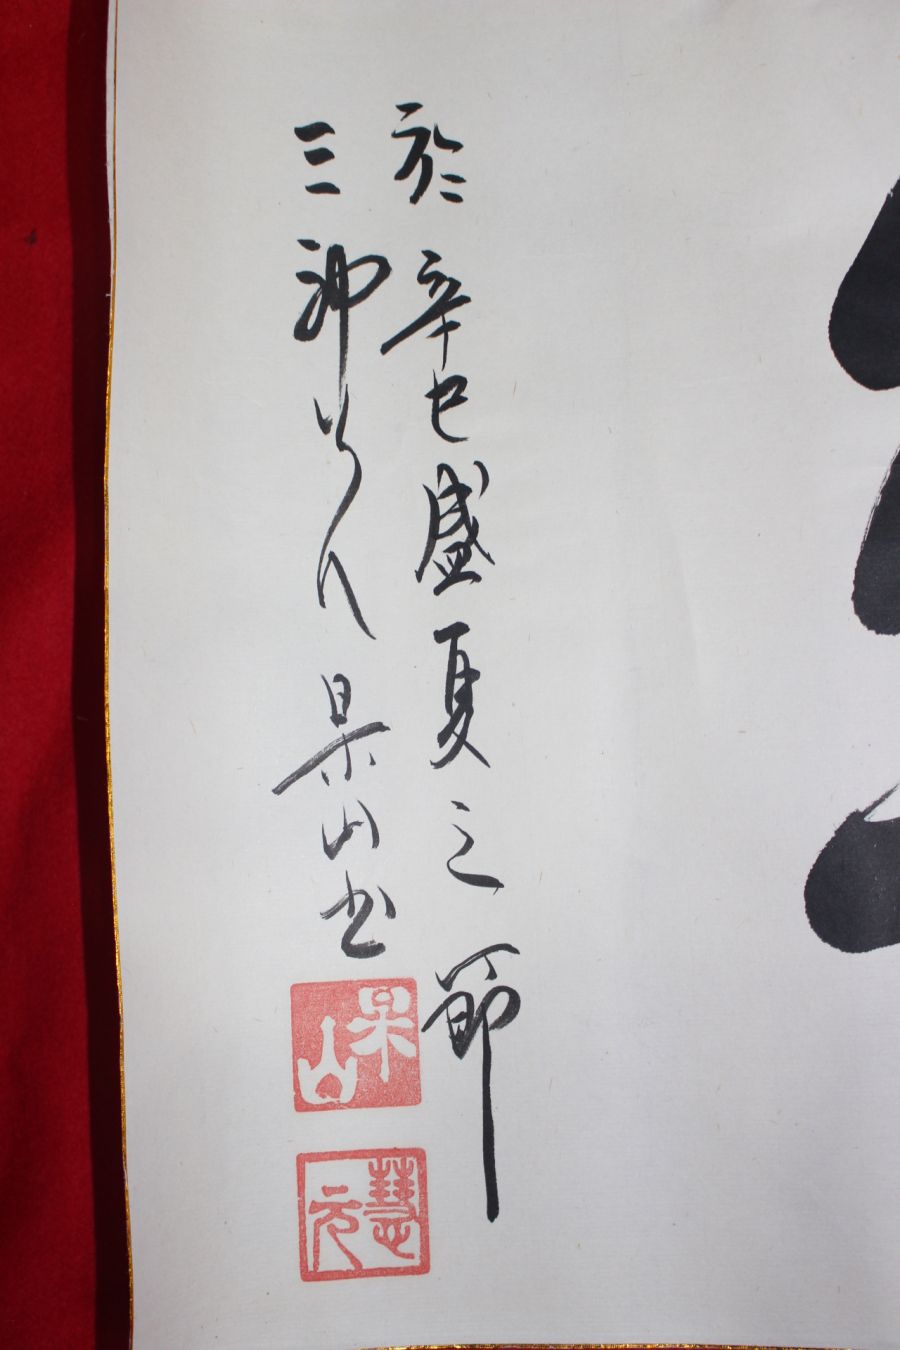 於辛巳盛夏之節
三神山人 杲山書
杲山
慧元